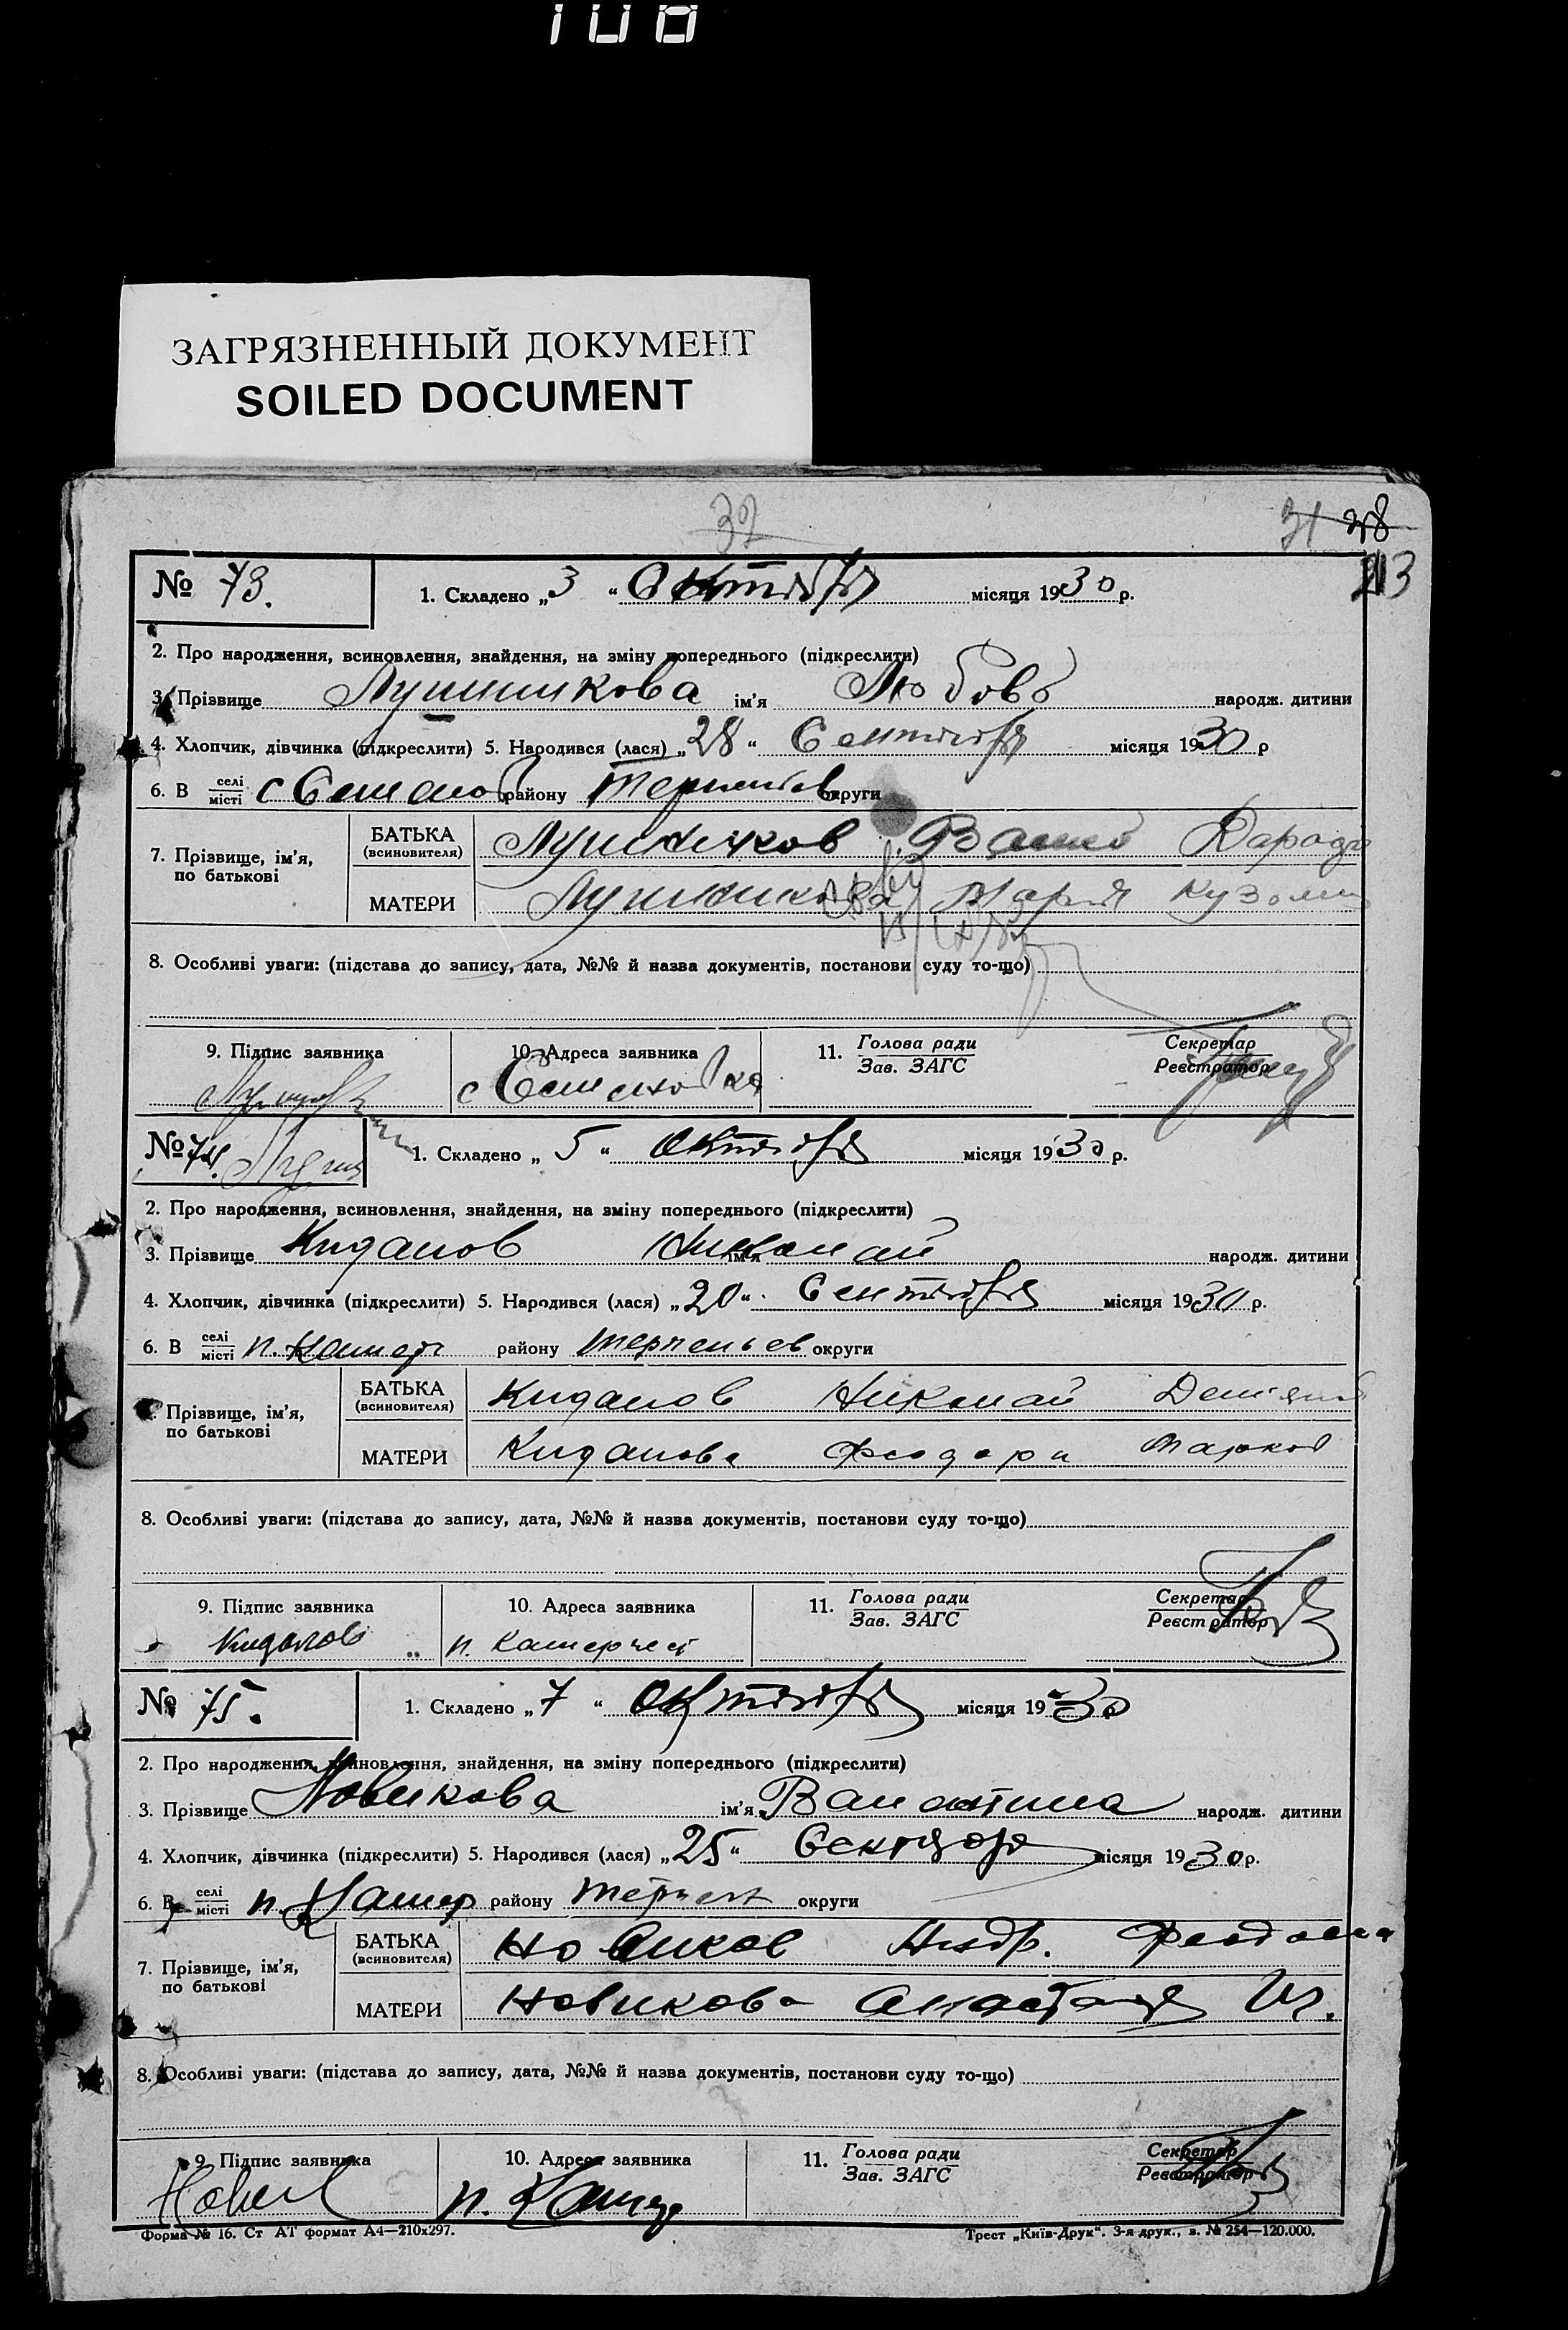 108
ЗАГРЯЗНЕННЫЙ ДОКУМЕНТ
SOILED DOCUMENT
32
31 28
213
№ 73. 1. Складено „3“ Октября місяця 1930 р.
2. Про народження, всиновлення, знайдення, на зміну попереднього (підкреслити)
3. Прізвище Лушникова ім'я Любовь народж. дитини
4. Хлопчик, дівчинка (підкреслити) 5. Народився (лася) „28“ Сентября місяця 1930 р
6. В селі місті с району округи
7. Прізвище, ім'я, по батькові
БАТЬКА (всиновителя) Лушников
МАТЕРИ Лушникова Мария Кузьми
8. Особливі уваги: (підстава до запису, дата, №№ й назва документів, постанови суду то-що)
9. Підпис заявника 10. Адреса заявника 11. Голова ради Зав. ЗАГС Секретар Реєстратор
с
№ 74. 1. Складено „5“ Октября місяця 1930 р.
2. Про народження, всиновлення, знайдення, на зміну попереднього (підкреслити)
3. Прізвище Кидалов ім'я Николай народж. дитини
4. Хлопчик, дівчинка (підкреслити) 5. Народився (лася) „20“ Сентября місяця 1930 р.
6. В селі місті п. району Терпеньев округи
7. Прізвище, ім'я, по батькові
БАТЬКА (всиновителя) Кидалов Николай
МАТЕРИ Кидалова Феодора Марков
8. Особливі уваги: (підстава до запису, дата, №№ й назва документів, постанови суду то-що)
9. Підпис заявника 10. Адреса заявника 11. Голова ради Зав. ЗАГС Секретар Реєстратор
Кидалов п.
№ 75. 1. Складено „7“ Октября місяця 1930
2. Про народження, всиновлення, знайдення, на зміну попереднього (підкреслити)
3. Прізвище Новикова ім'я Валантина народж. дитини
4. Хлопчик, дівчинка (підкреслити) 5. Народився (лася) „25“ Сентября місяця 1930 р.
6. В селі місті п. району округи
7. Прізвище, ім'я, по батькові
БАТЬКА (всиновителя) Новиков
МАТЕРИ Новикова
8. Особливі уваги: (підстава до запису, дата, №№ й назва документів, постанови суду то-що)
9. Підпис заявника 10. Адреса заявника 11. Голова ради Зав. ЗАГС Секретар Реєстратор
п.
Форма № 16. Ст АТ формат А4—210х297. Трест „Київ-Друк“. 3-я друк., з. № 254—120.000.